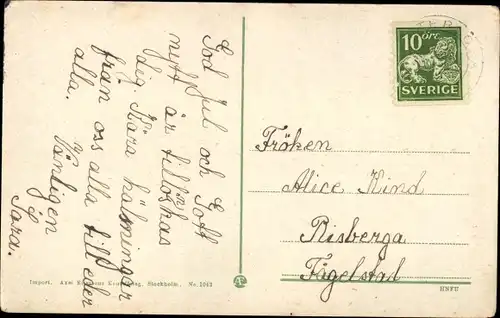 God Jul och Gott
nytt år tillönskas
dig. Kära hälsningar
från oss alla till eder
alla.
Vänligen
Sara.
10 ÖRE
SVERIGE
Fröken
Alice Kind
Risberga
Fågelstad
Import. Axel Konstförlag, Stockholm. No. 1063